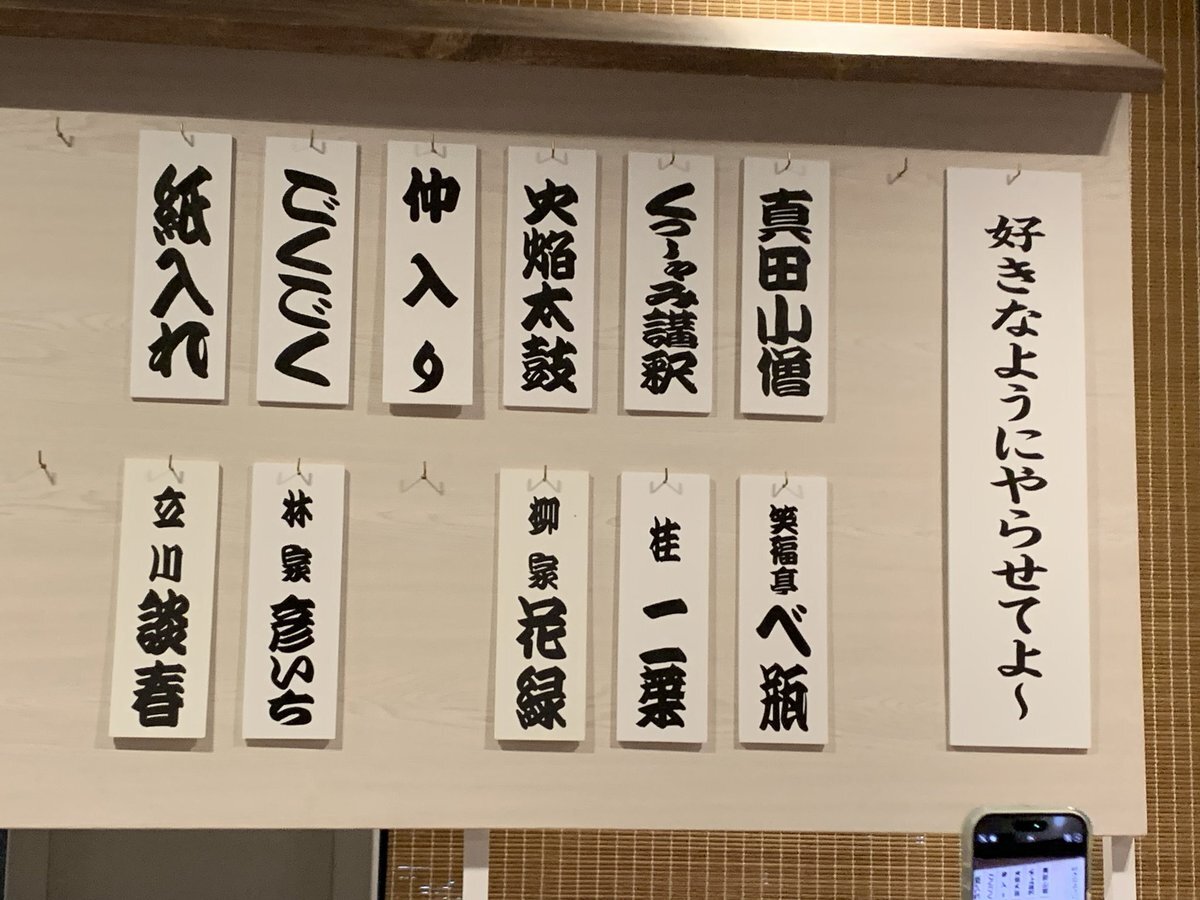 好きなようにやらせてよ〜
真田小僧
くっしゃみ講釈
火焔太鼓
仲入り
ごくごく
紙入れ
笑福亭べ瓶
桂二葉
柳家花緑
林家彦いち
立川談春